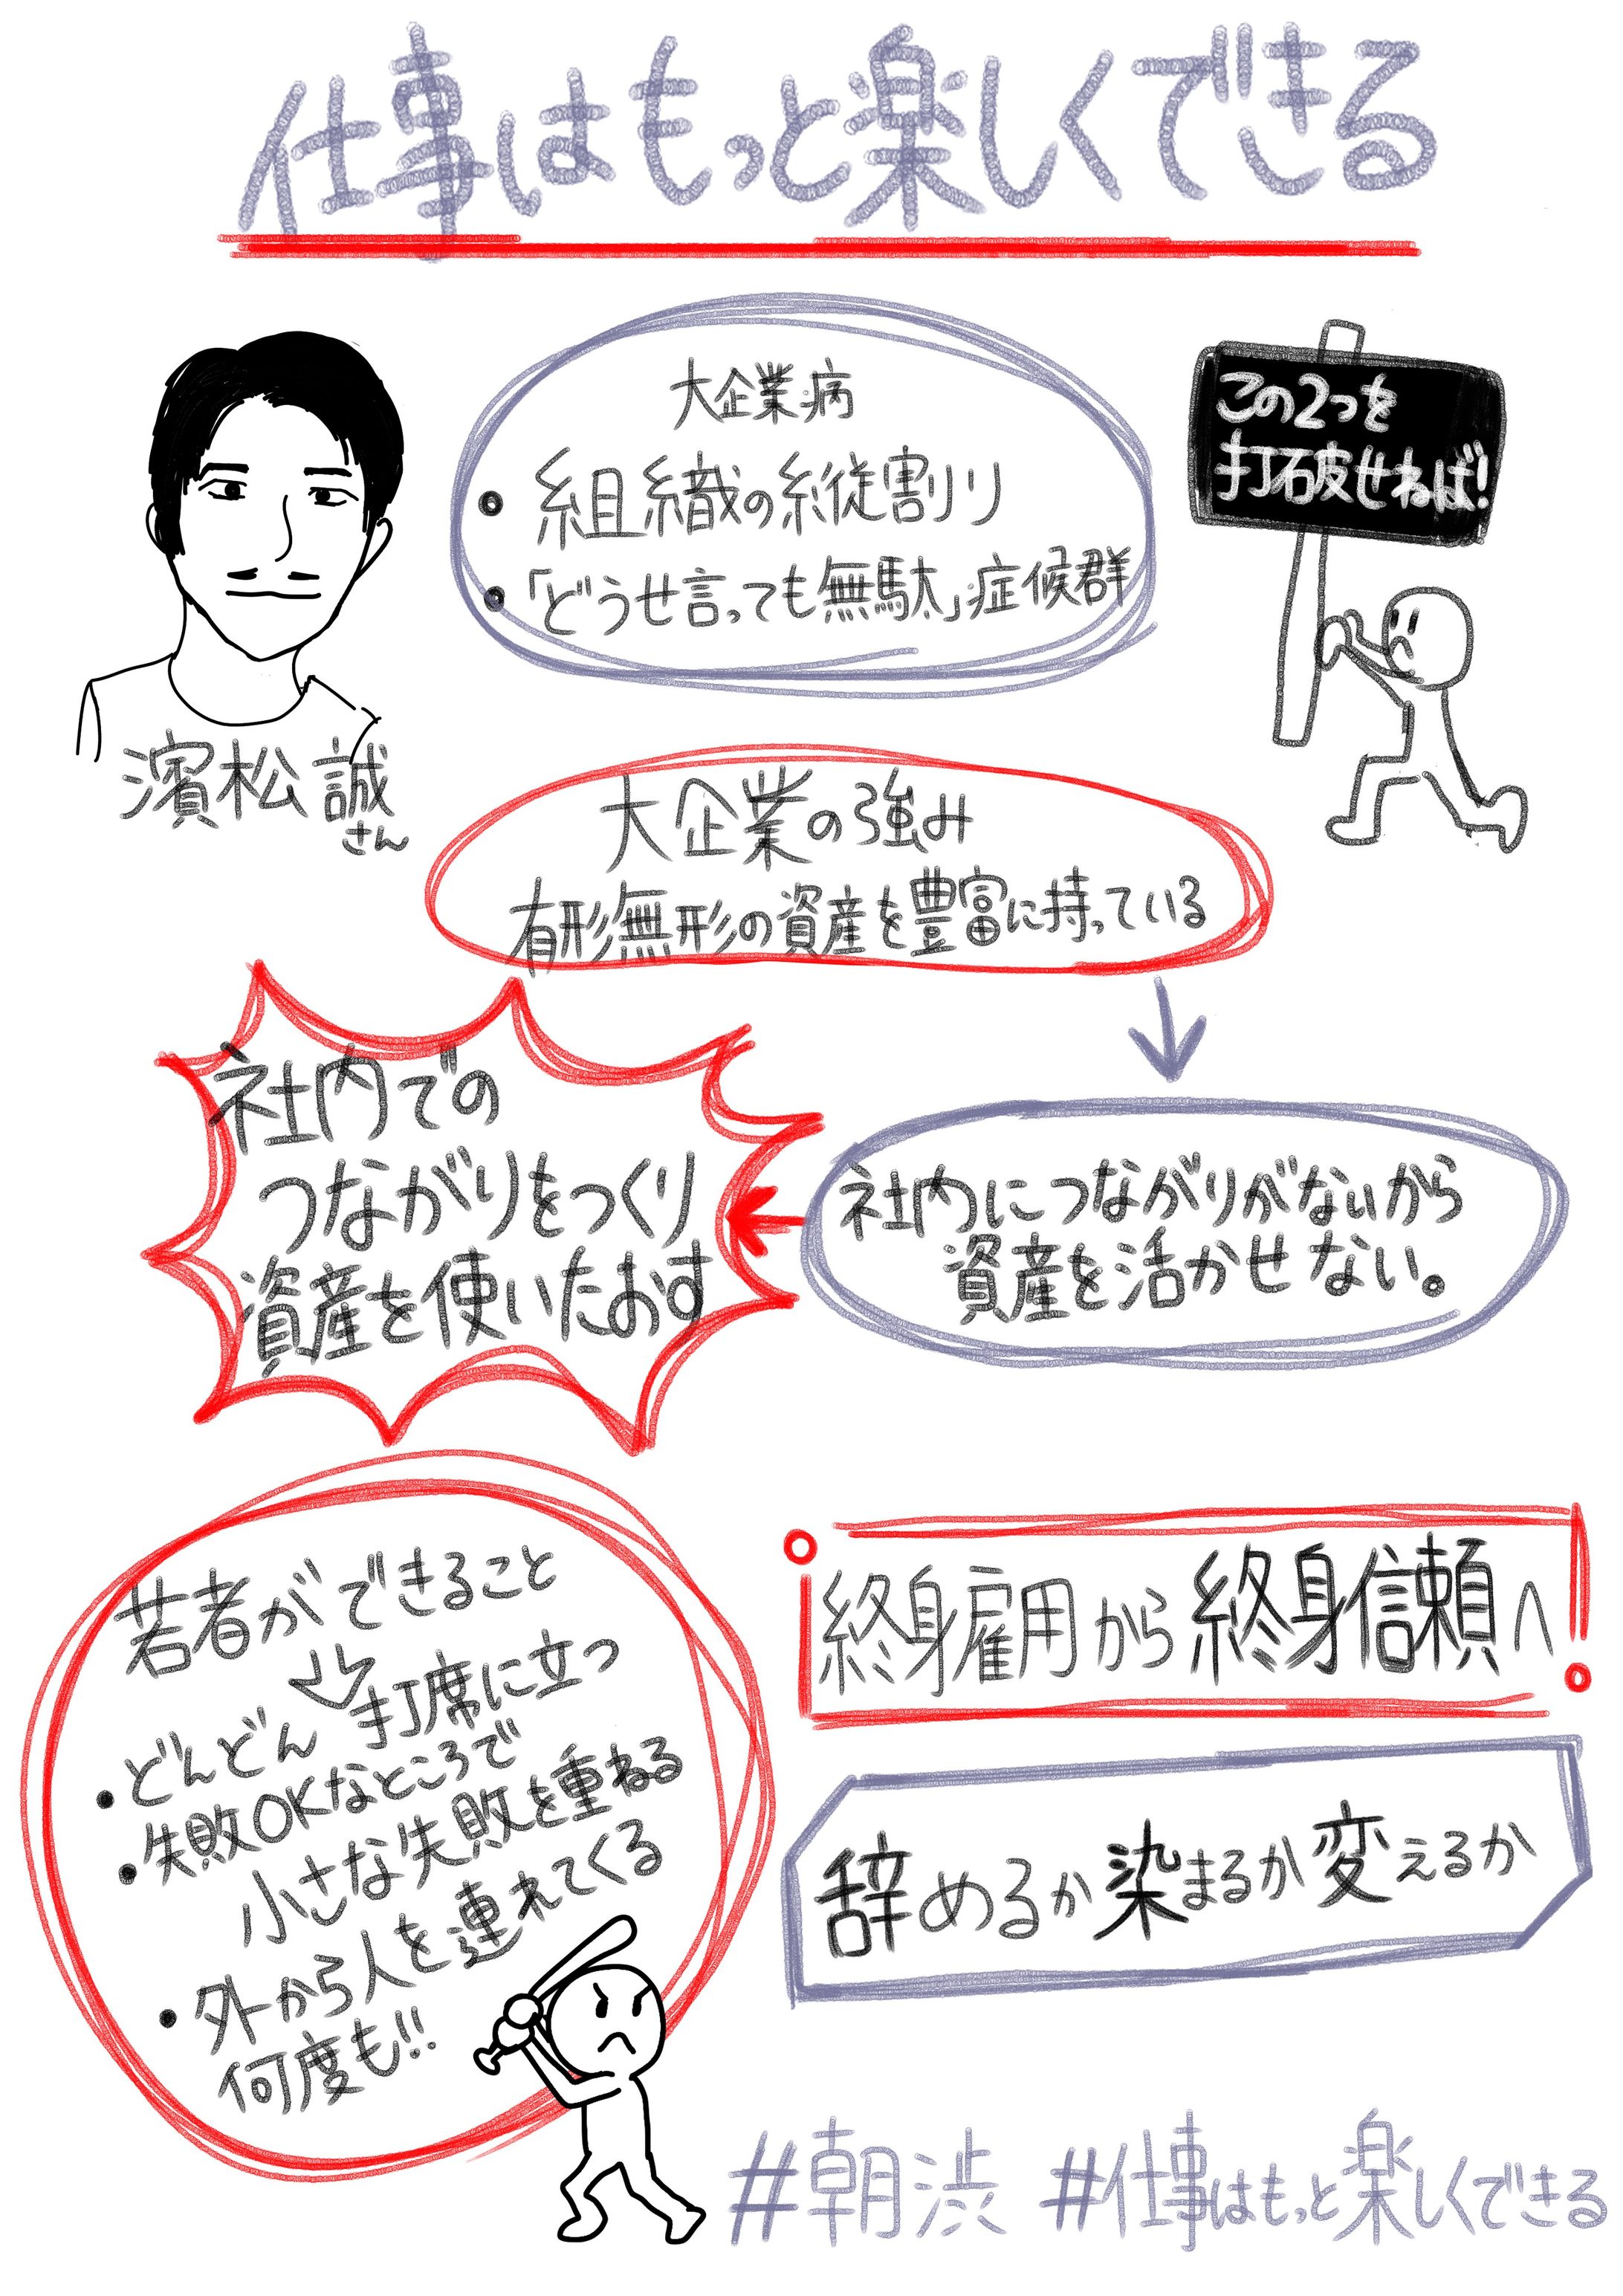 仕事はもっと楽しくできる
大企業病
• 組織の縦割り
• 「どうせ言っても無駄」症候群
この2つを
打破せねば!
濱松 誠
さん
大企業の強み
有形無形の資産を豊富に持っている
社内につながりがないから
資産を活かせない。
社内での
つながりをつくり
資産を使いたおす
若者ができること
• どんどん 打席に立つ
• 失敗OKなところで
小さな失敗を重ねる
• 外から人を連れてくる
何度も!!
終身雇用から終身信頼へ
辞めるか染まるか変えるか
#朝渋 #仕事はもっと楽しくできる